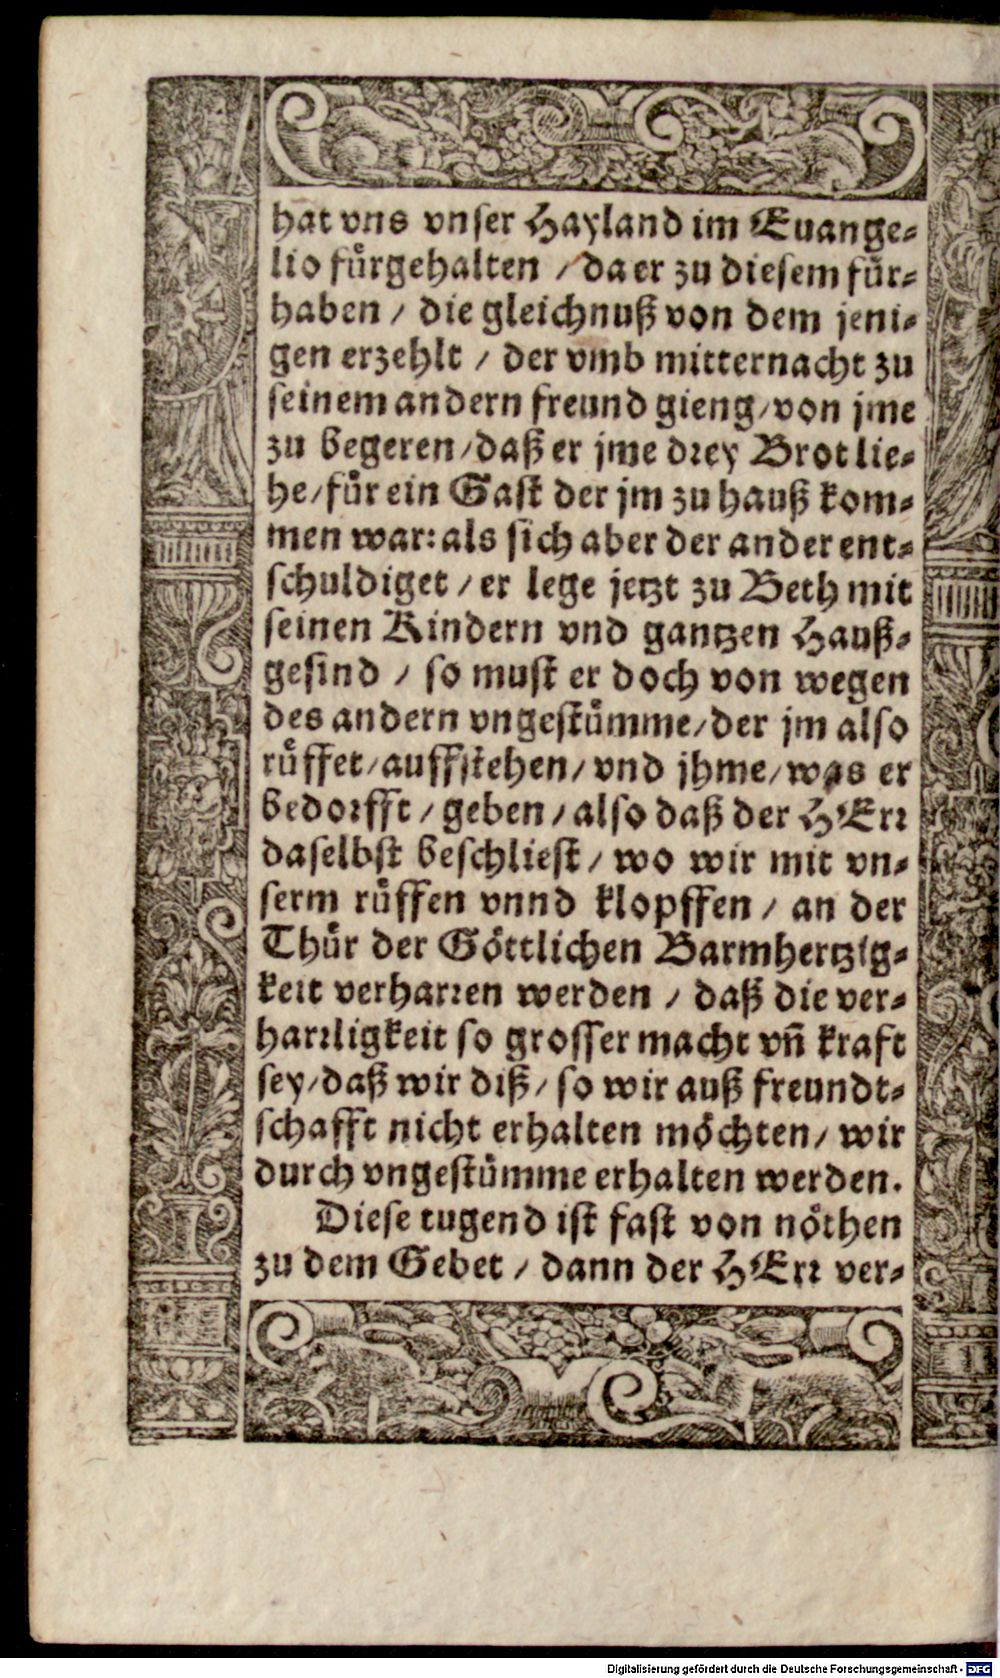 hat vns vnser Hayland im Euange-
lio fuͤrgehalten / da er zu diesem fuͤr-
haben / die gleichnuß von dem jeni-
gen erzehlt / der vmb mitternacht zu
seinem andern freund gieng / von jme
zu begeren / daß er jme drey Brot lie-
he / fuͤr ein Gast der jm zu hauß kom-
men war: als sich aber der ander ent-
schuldiget / er lege jetzt zu Beth mit
seinen Kindern vnd gantzen Hauß-
gesind / so must er doch von wegen
des andern vngestuͤmme / der jm also
ruͤffet / auffstehen / vnd jhme / was er
bedorfft / geben / also daß der HErr
daselbst beschliest / wo wir mit vn-
serm ruͤffen vnnd klopffen / an der
Thuͤr der Goͤttlichen Barmhertzig-
keit verharren werden / daß die ver-
harrligkeit so grosser macht vñ kraft
sey / daß wir diß / so wir auß freundt-
schafft nicht erhalten moͤchten / wir
durch vngestuͤmme erhalten werden.
Diese tugend ist fast von noͤthen
zu dem Gebet / dann der HErr ver-
Digitalisierung gefördert durch die Deutsche Forschungsgemeinschaft - DFG